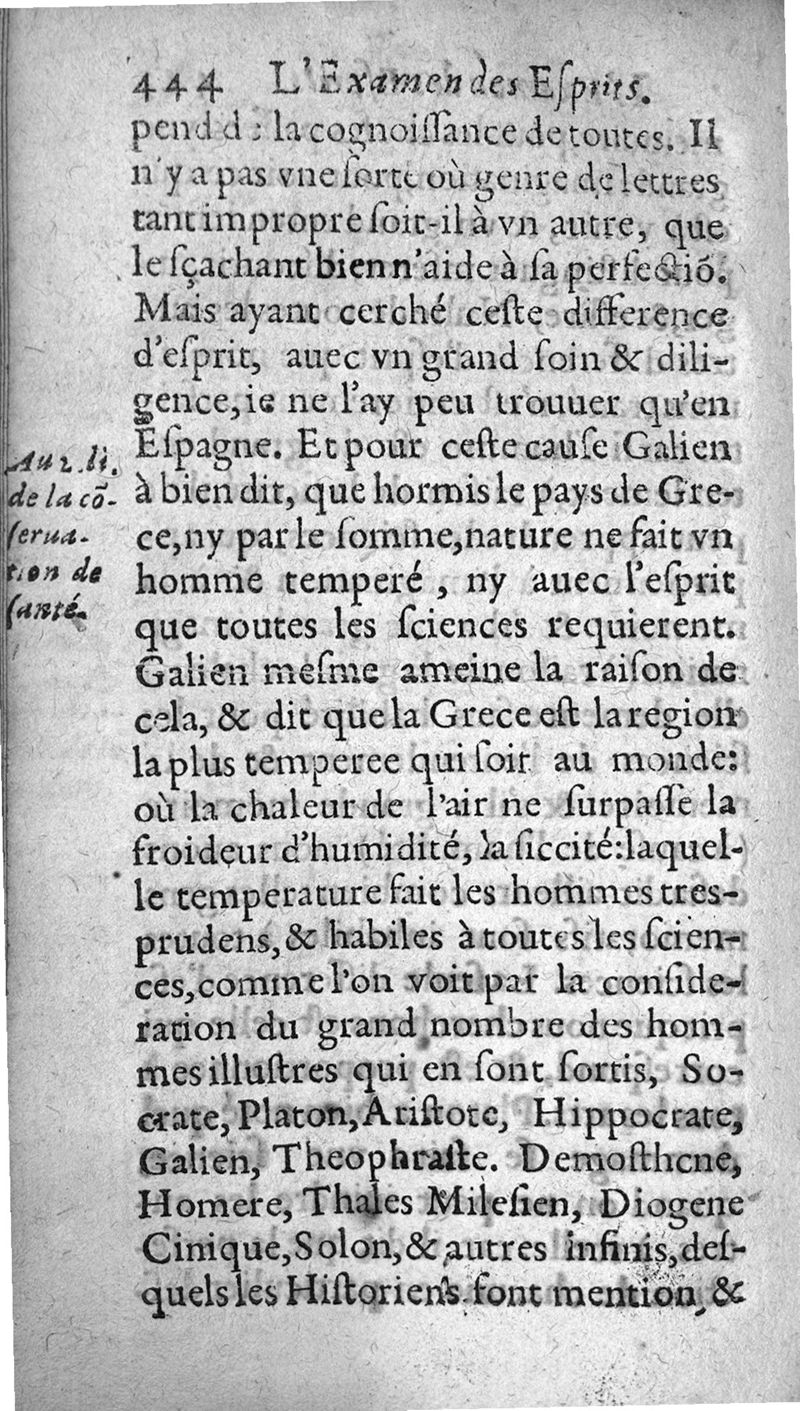 444 L'Examen des Eſprits.
pend d : la cognoiſſance de toutes. Il
n'y a pas vne ſorte où genre de lettres
tant impropre ſoit-il à vn autre, que
le ſçachant bien n'aide à ſa perfectiõ.
Mais ayant cerché ceſte difference
d'eſprit, auec vn grand ſoin & dili-
gence, ie ne l'ay peu trouuer qu'en
Eſpagne. Et pour ceſte cauſe Galien
à bien dit, que hormis le pays de Gre-
ce, ny par le ſomme, nature ne fait vn
homme temperé, ny auec l'eſprit
que toutes les ſciences requierent.
Galien meſme ameine la raiſon de
cela, & dit que la Grece eſt la region
la plus temperee qui ſoit au monde:
où la chaleur de l'air ne ſurpaſſe la
froideur d'humidité, la ſiccité: laquel-
le temperature fait les hommes tres-
prudens, & habiles à toutes les ſcien-
ces, comme l'on voit par la conſide-
ration du grand nombre des hom-
mes illuſtres qui en ſont ſortis, So-
crate, Platon, Ariſtote, Hippocrate,
Galien, Theophraſte. Demoſthene,
Homere, Thales Mileſien, Diogene
Cinique, Solon, & autres infinis, deſ-
quels les Hiſtoriens font mention, &
Au 2. li.
de la cõ-
ſerua-
tion de
ſanté.